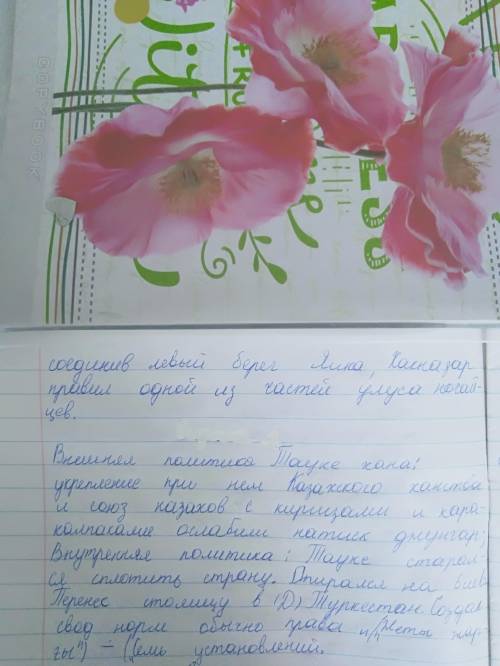 COPYBOOK
соединив левый берег Яика, Хакназар
правил одной из частей улуса ногай-
цев.
Внешняя политика Тауке хана:
укрепление при нем Казахского ханства
и союз казахов с киргизами и кара-
калпаками ослабили натиск джунгар;
Внутренняя политика: Тауке старал-
ся сплотить страну. Опирался на биев
Перенес столицу в (Д) Туркестан. Создал
свод норм обычно права п/п "Жеты жар-
гы") – (семь установлений.